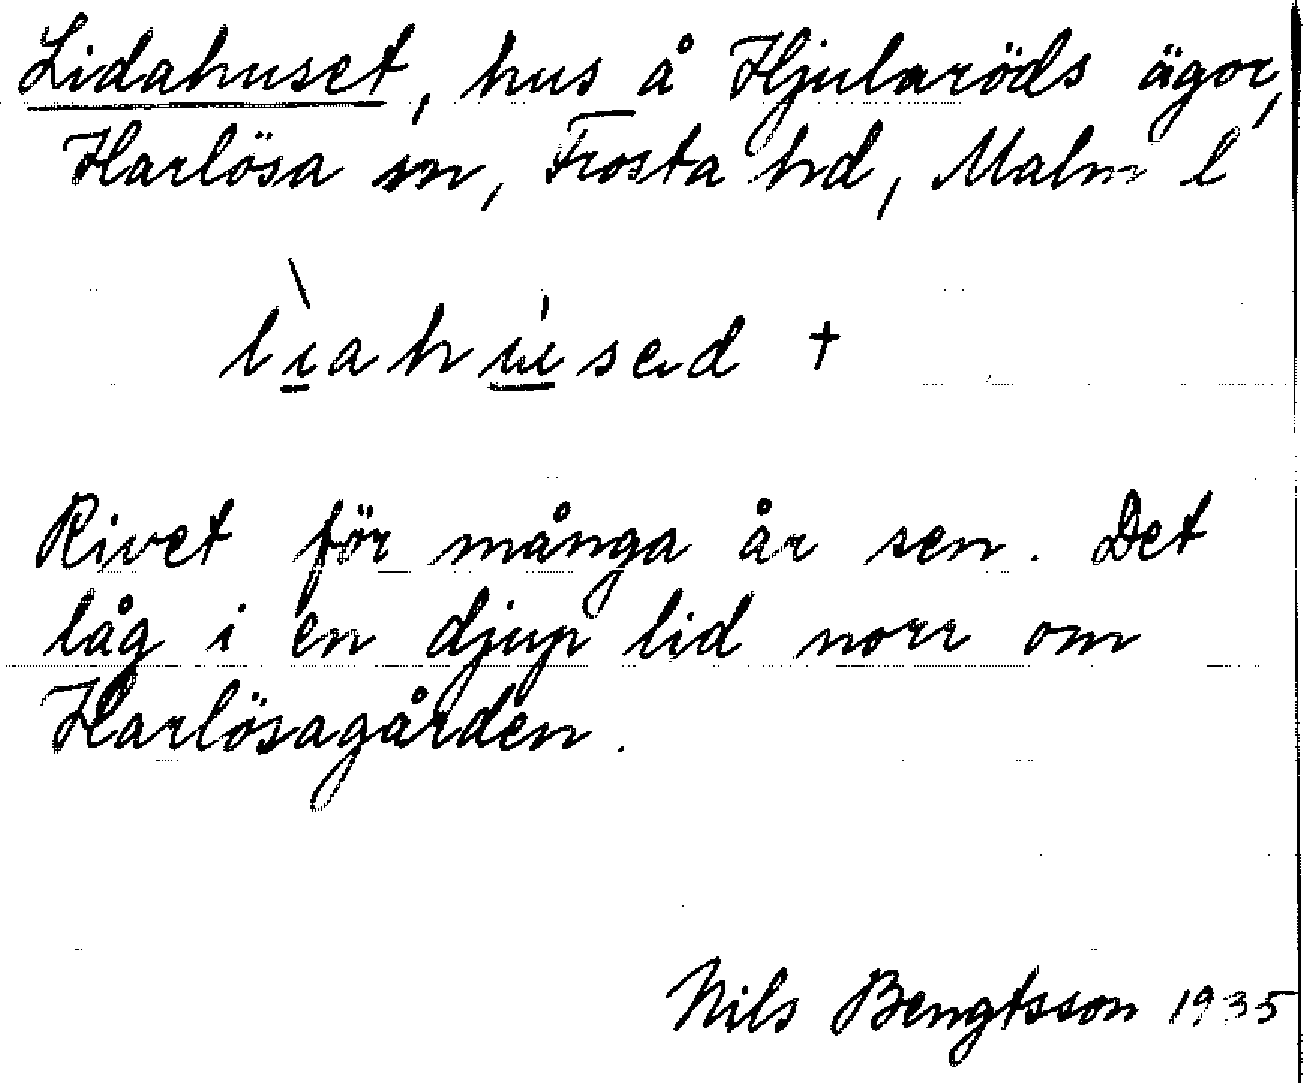 Lidahuset, hus å Hjularöds ägor,
Harlösa sn, Frosta hd, Malm l
Rivet för många år sen. Det
låg i en djup lid norr om
Harlösagården.
Nils Bengtsson 1935